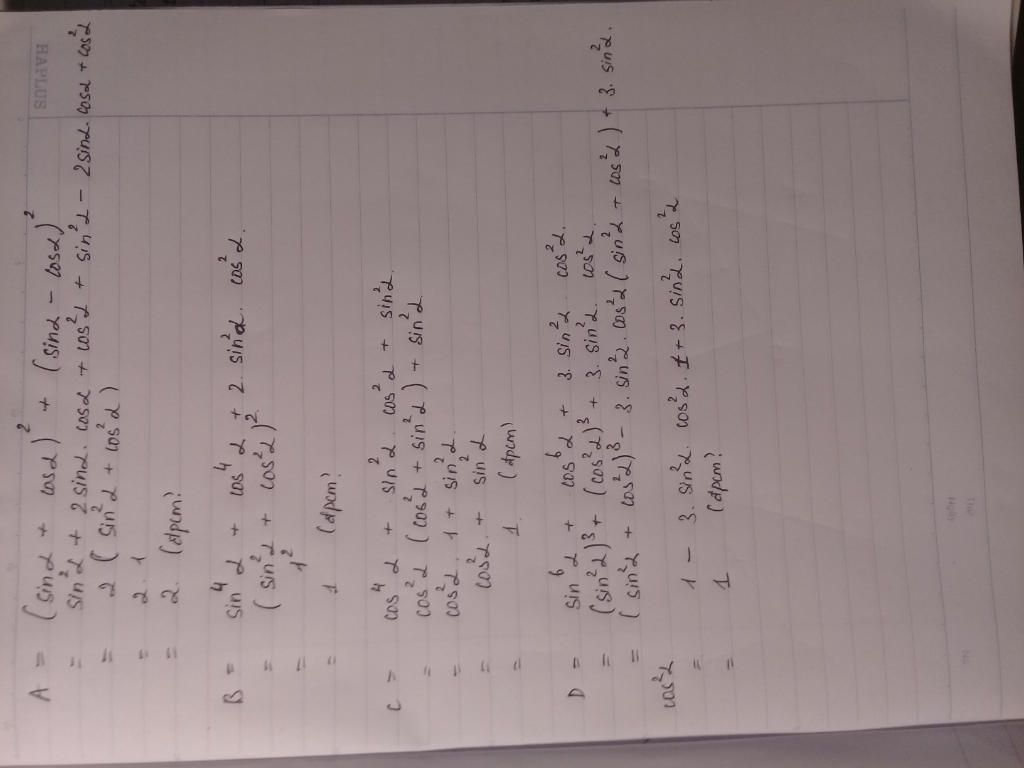 HAPLUS
A = (sinα + cosα)² + (sinα - cosα)²
= sin²α + 2 sinα. cosα + cos²α + sin²α - 2sinα.cosα + cos²α
= 2 (sin²α + cos²α)
= 2. 1
= 2. (đpcm)
B = sin⁴α + cos⁴α + 2. sin²α. cos²α.
= (sin²α + cos²α)²
= 1²
= 1 (đpcm)
C = cos⁴α + sin²α. cos²α + sin²α.
= cos²α (cos²α + sin²α) + sin²α
= cos²α. 1 + sin²α.
= cos²α. + sin²α
= 1. (đpcm)
D = sin⁶α + cos⁶α + 3. sin²α. cos²α.
= (sin²α)³ + (cos²α)³ + 3. sin²α. cos²α.
= (sin²α + cos²α)³ - 3. sin²α. cos²α (sin²α + cos²α) + 3. sin²α.
cos²α
= 1 - 3. sin²α. cos²α. 1 + 3. sin²α. cos²α
= 1 (đpcm)